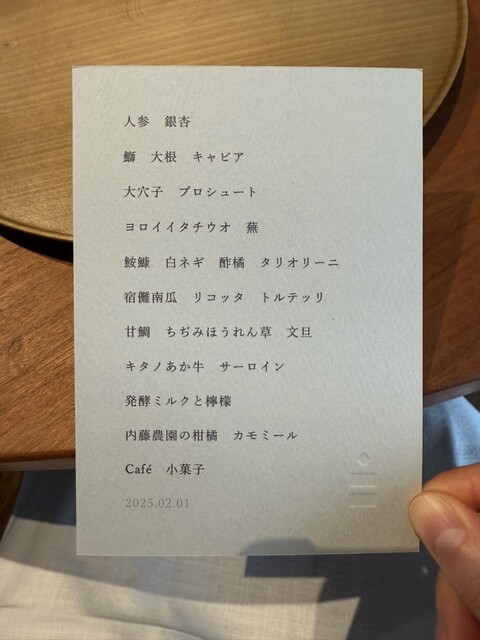 人参　銀杏
鰤　大根　キャビア
大穴子　プロシュート
ヨロイイタチウオ　蕪
鮟鱇　白ネギ　酢橘　タリオリーニ
宿儺南瓜　リコッタ　トルテッリ
甘鯛　ちぢみほうれん草　文旦
キタノあか牛　サーロイン
発酵ミルクと檸檬
内藤農園の柑橘　カモミール
Café　小菓子
2025.02.01